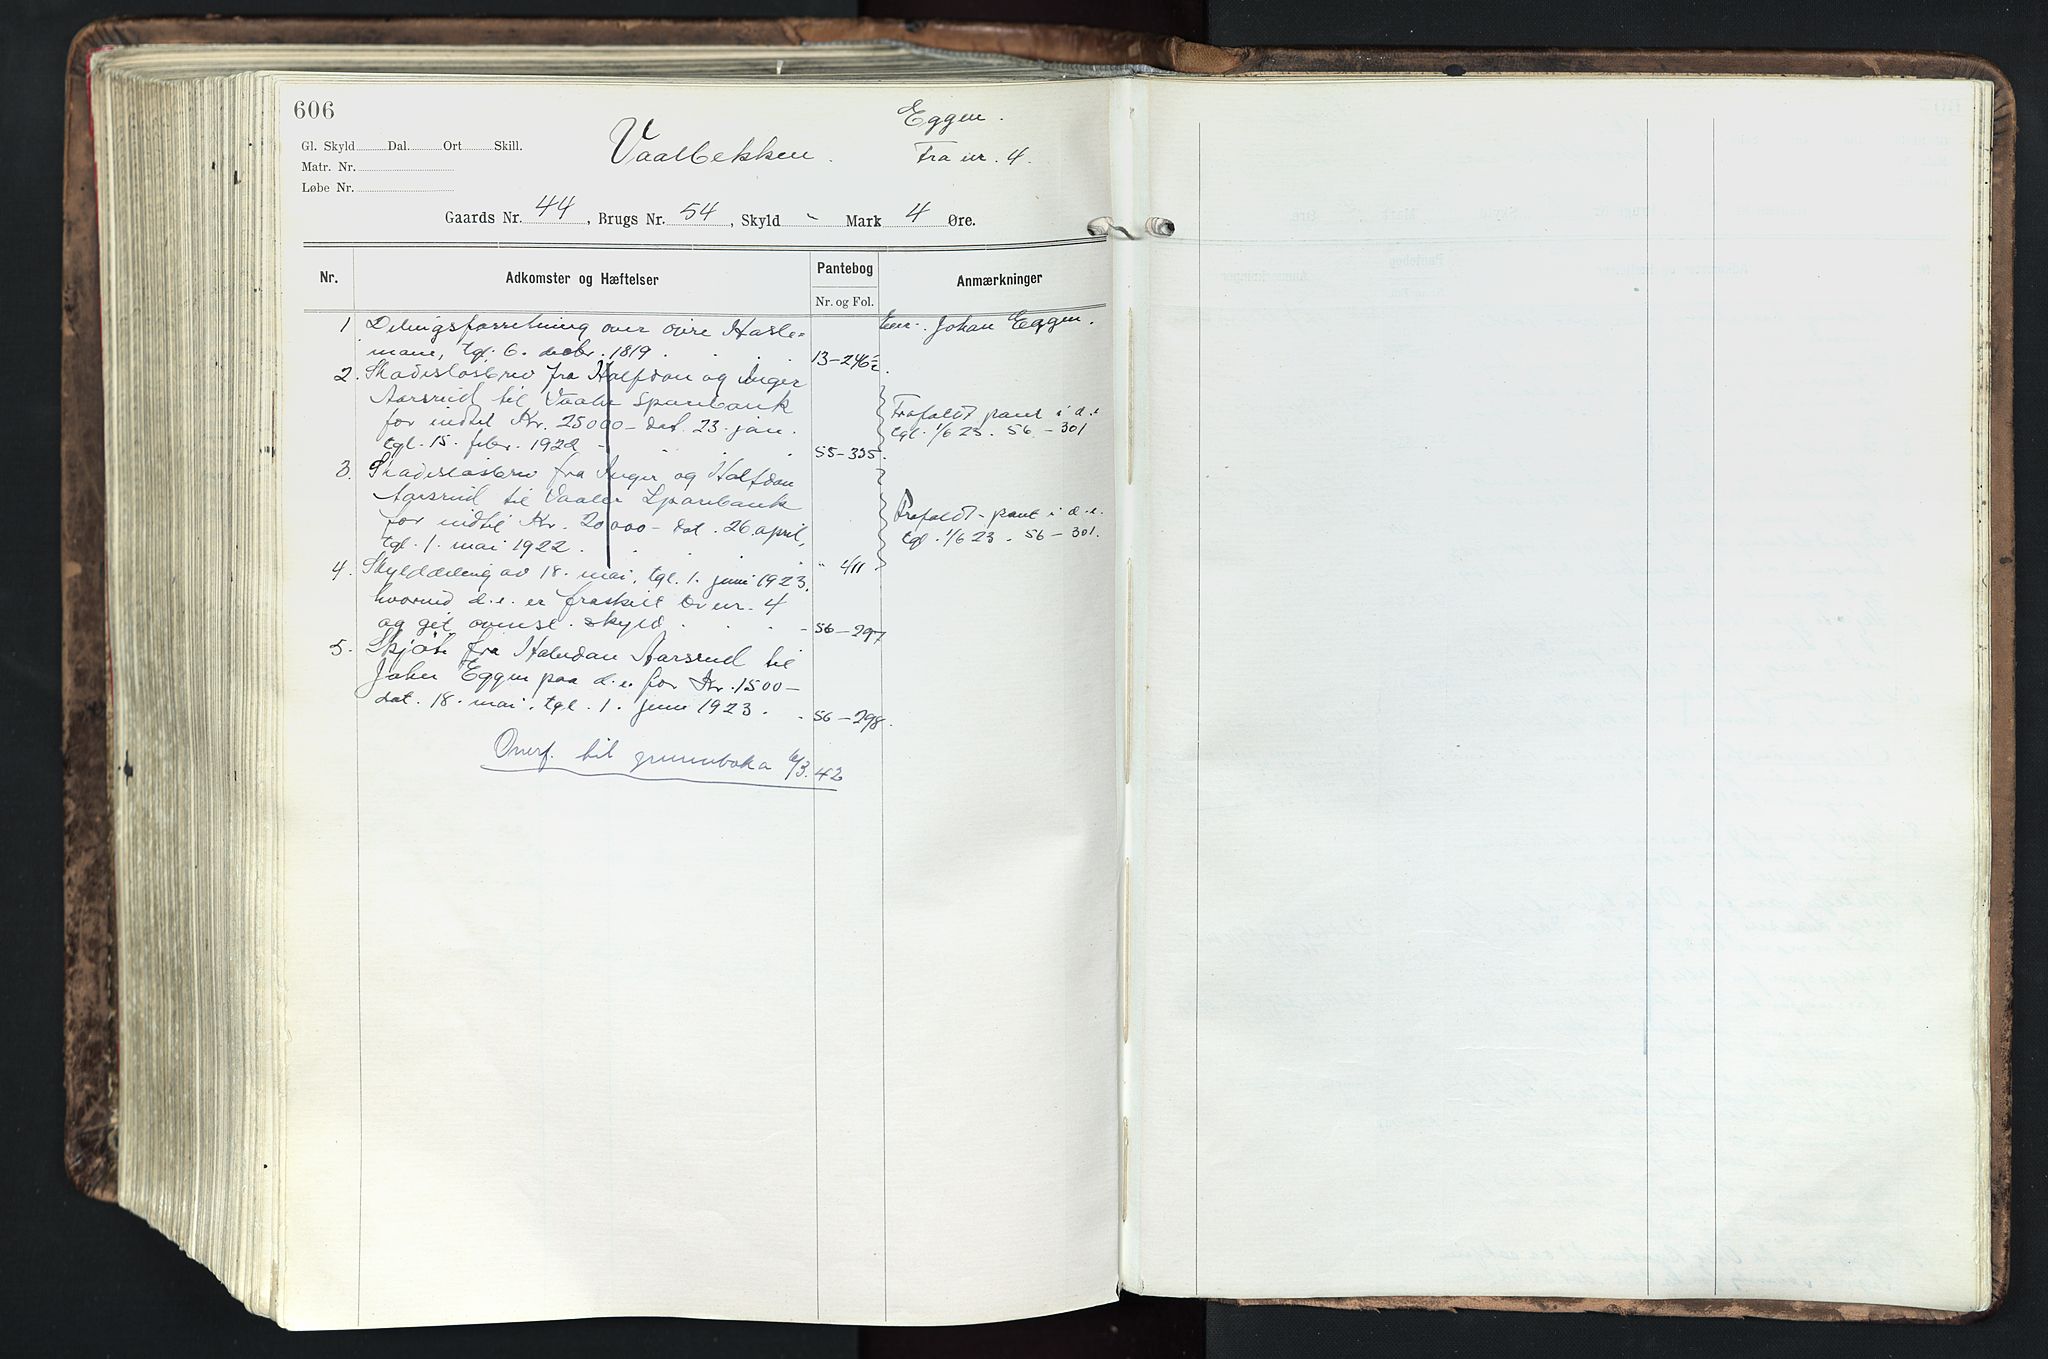 606
Eggen.
Gl. Skyld Dal. Ort Skill.
Vaalbekken.
Fra nr. 4.
Matr. Nr.
Løbe Nr.
Gaards Nr. 44, Brugs Nr. 54, Skyld " Mark 4 Øre.
Nr. Adkomster og Hæftelser Pantebog Anmærkninger
Nr. og Fol.
1 Delingsforretning over øvre Hasle- Eier: Johan Eggen.
moen, tgl. 6. decbr. 1819. 13–246
2. Skadesløsbrev fra Halfdan og Inger
Aarsrud til Vaaler Sparebank Frafaldt pant i d.e.
for indtil Kr. 25000– dat. 23. jan. tgl. 1/6 23. 56–301
tgl. 15. febr. 1922 55–335.
3 Skadesløsbrev fra Inger og Halfdan
Aarsrud til Vaaler Sparebank Frafaldt pant i d.e.
for indtil Kr. 20000– dat. 26. april, tgl. 1/6 23. 56–301.
tgl. 1. mai 1922. " 411
4. Skylddeling av 18. mai, tgl. 1. juni 1923,
hvorved d.e. er fraskilt br.nr. 4
og git ovenst. skyld. 56–297
5. Skjøte fra Halvdan Aarsrud til
Johan Eggen paa d.e. for Kr. 1500–
dat. 18. mai, tgl. 1. juni 1923. 56–298.
Overf. til grunnboka 6/3.42